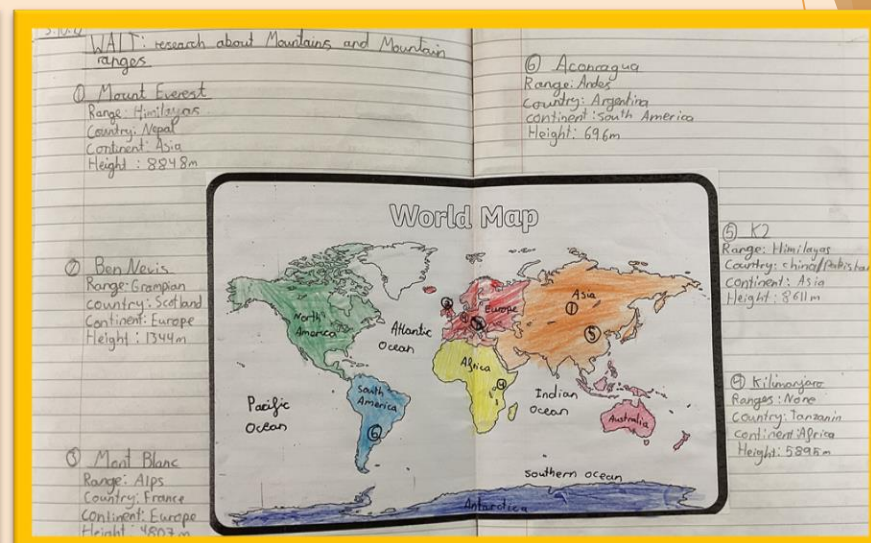 WALT: research about Mountains and Mountain
ranges
① Mount Everest
Range: Himilayas
Country: Nepal
Continent: Asia
Height: 8848m
② Ben Nevis
Range: Grampian
country: Scotland
Continent: Europe
Height: 1344m
③ Mont Blanc
Range: Alps
Country: France
Continent: Europe
Height: 4807m
⑥ Aconcagua
Range: Andes
Country: Argentina
continent: South America
Height: 696m
⑤ K2
Range: Himilayas
Country: china/Pakistan
Continent: Asia
Height: 8611m
④ Kilimanjaro
Ranges: None
Country: Tanzania
Continent: Africa
Height: 5895m
World Map
North America
Atlantic Ocean
Europe
Asia
① 
⑤
Africa
④
Pacific Ocean
South America
⑥
Indian Ocean
Australia
Southern ocean
Antarctica